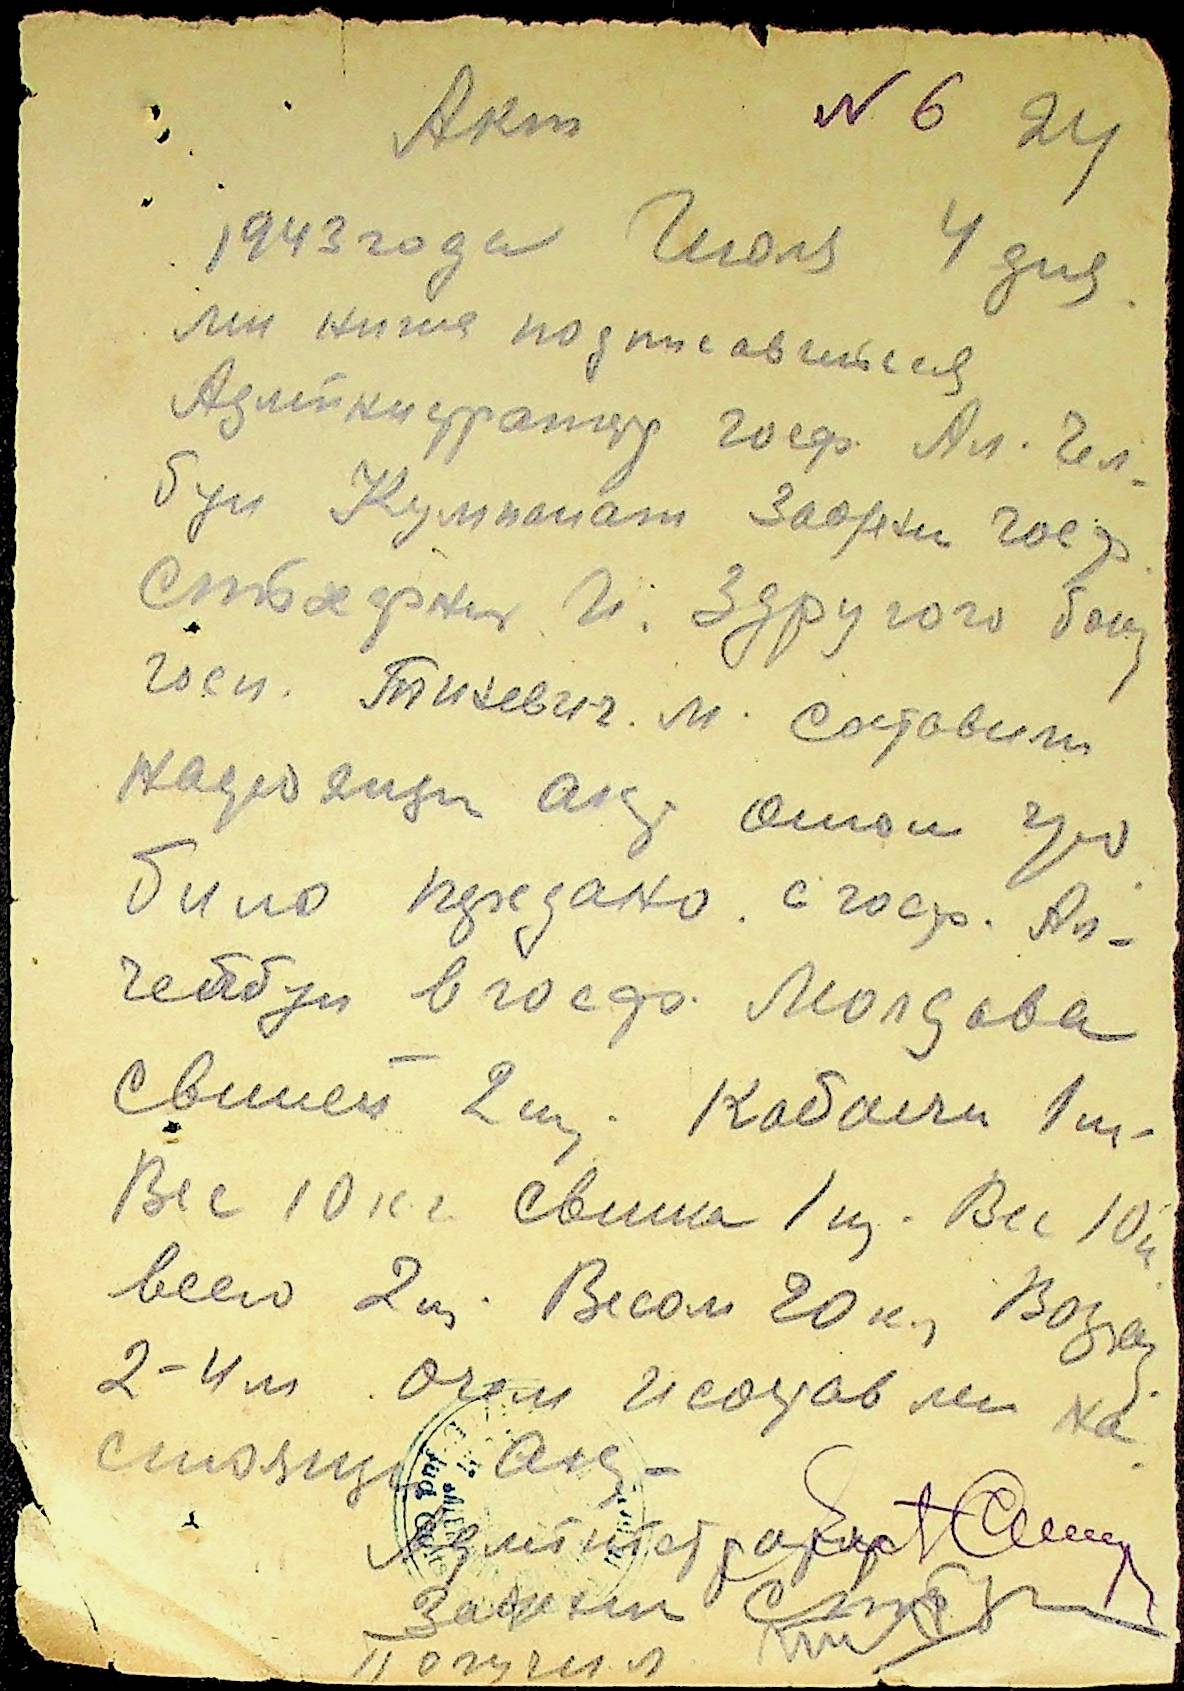 Акт № 6 24
1943 года Июля 4 дня.
ми ниже подписавшися
Адмийнистратор госф. Ал. Чел-
бул Кумпанат Заофхи госф.
И. Здругого боку
госп. Тикевич. М. Составили
акт отом что
било передано. с госф. Ал-
челбул в госф. Молдова
свиней 2 шт. Кабанчи 1 ш-
Вес 10 кг свинка 1 шт. Вес 10 к.
всего 2 шт. Весом 20 кг, Возрас
2-4 м. очем исоставлен на
стоящи акт-
Администратор
Получил